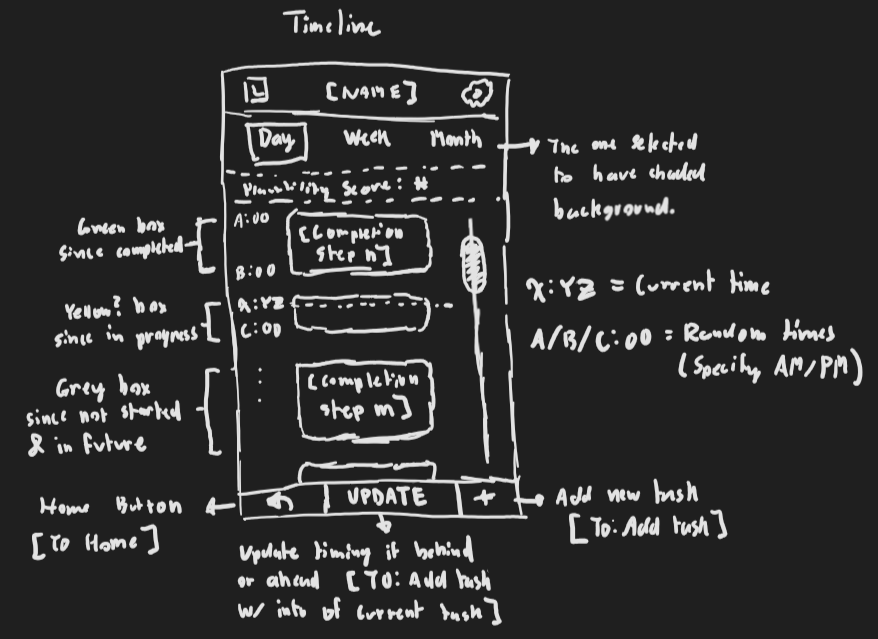 Timeline
[NAME]
Day Week Month
The one selected
to have shaded
background.
Plausibility Score: #
A:00
[Completion
step n]
B:00
Green box
since completed
X:YZ
C:00
Yellow? box
since in progress
X:YZ = Current time
A/B/C:00 = Random times
(Specify AM/PM)
[Completion
step m]
Grey box
since not started
& in future
UPDATE +
Home Button
[To Home]
Add new task
[To: Add task]
Update timing if behind
or ahead [TO: Add task
w/ info of current task]